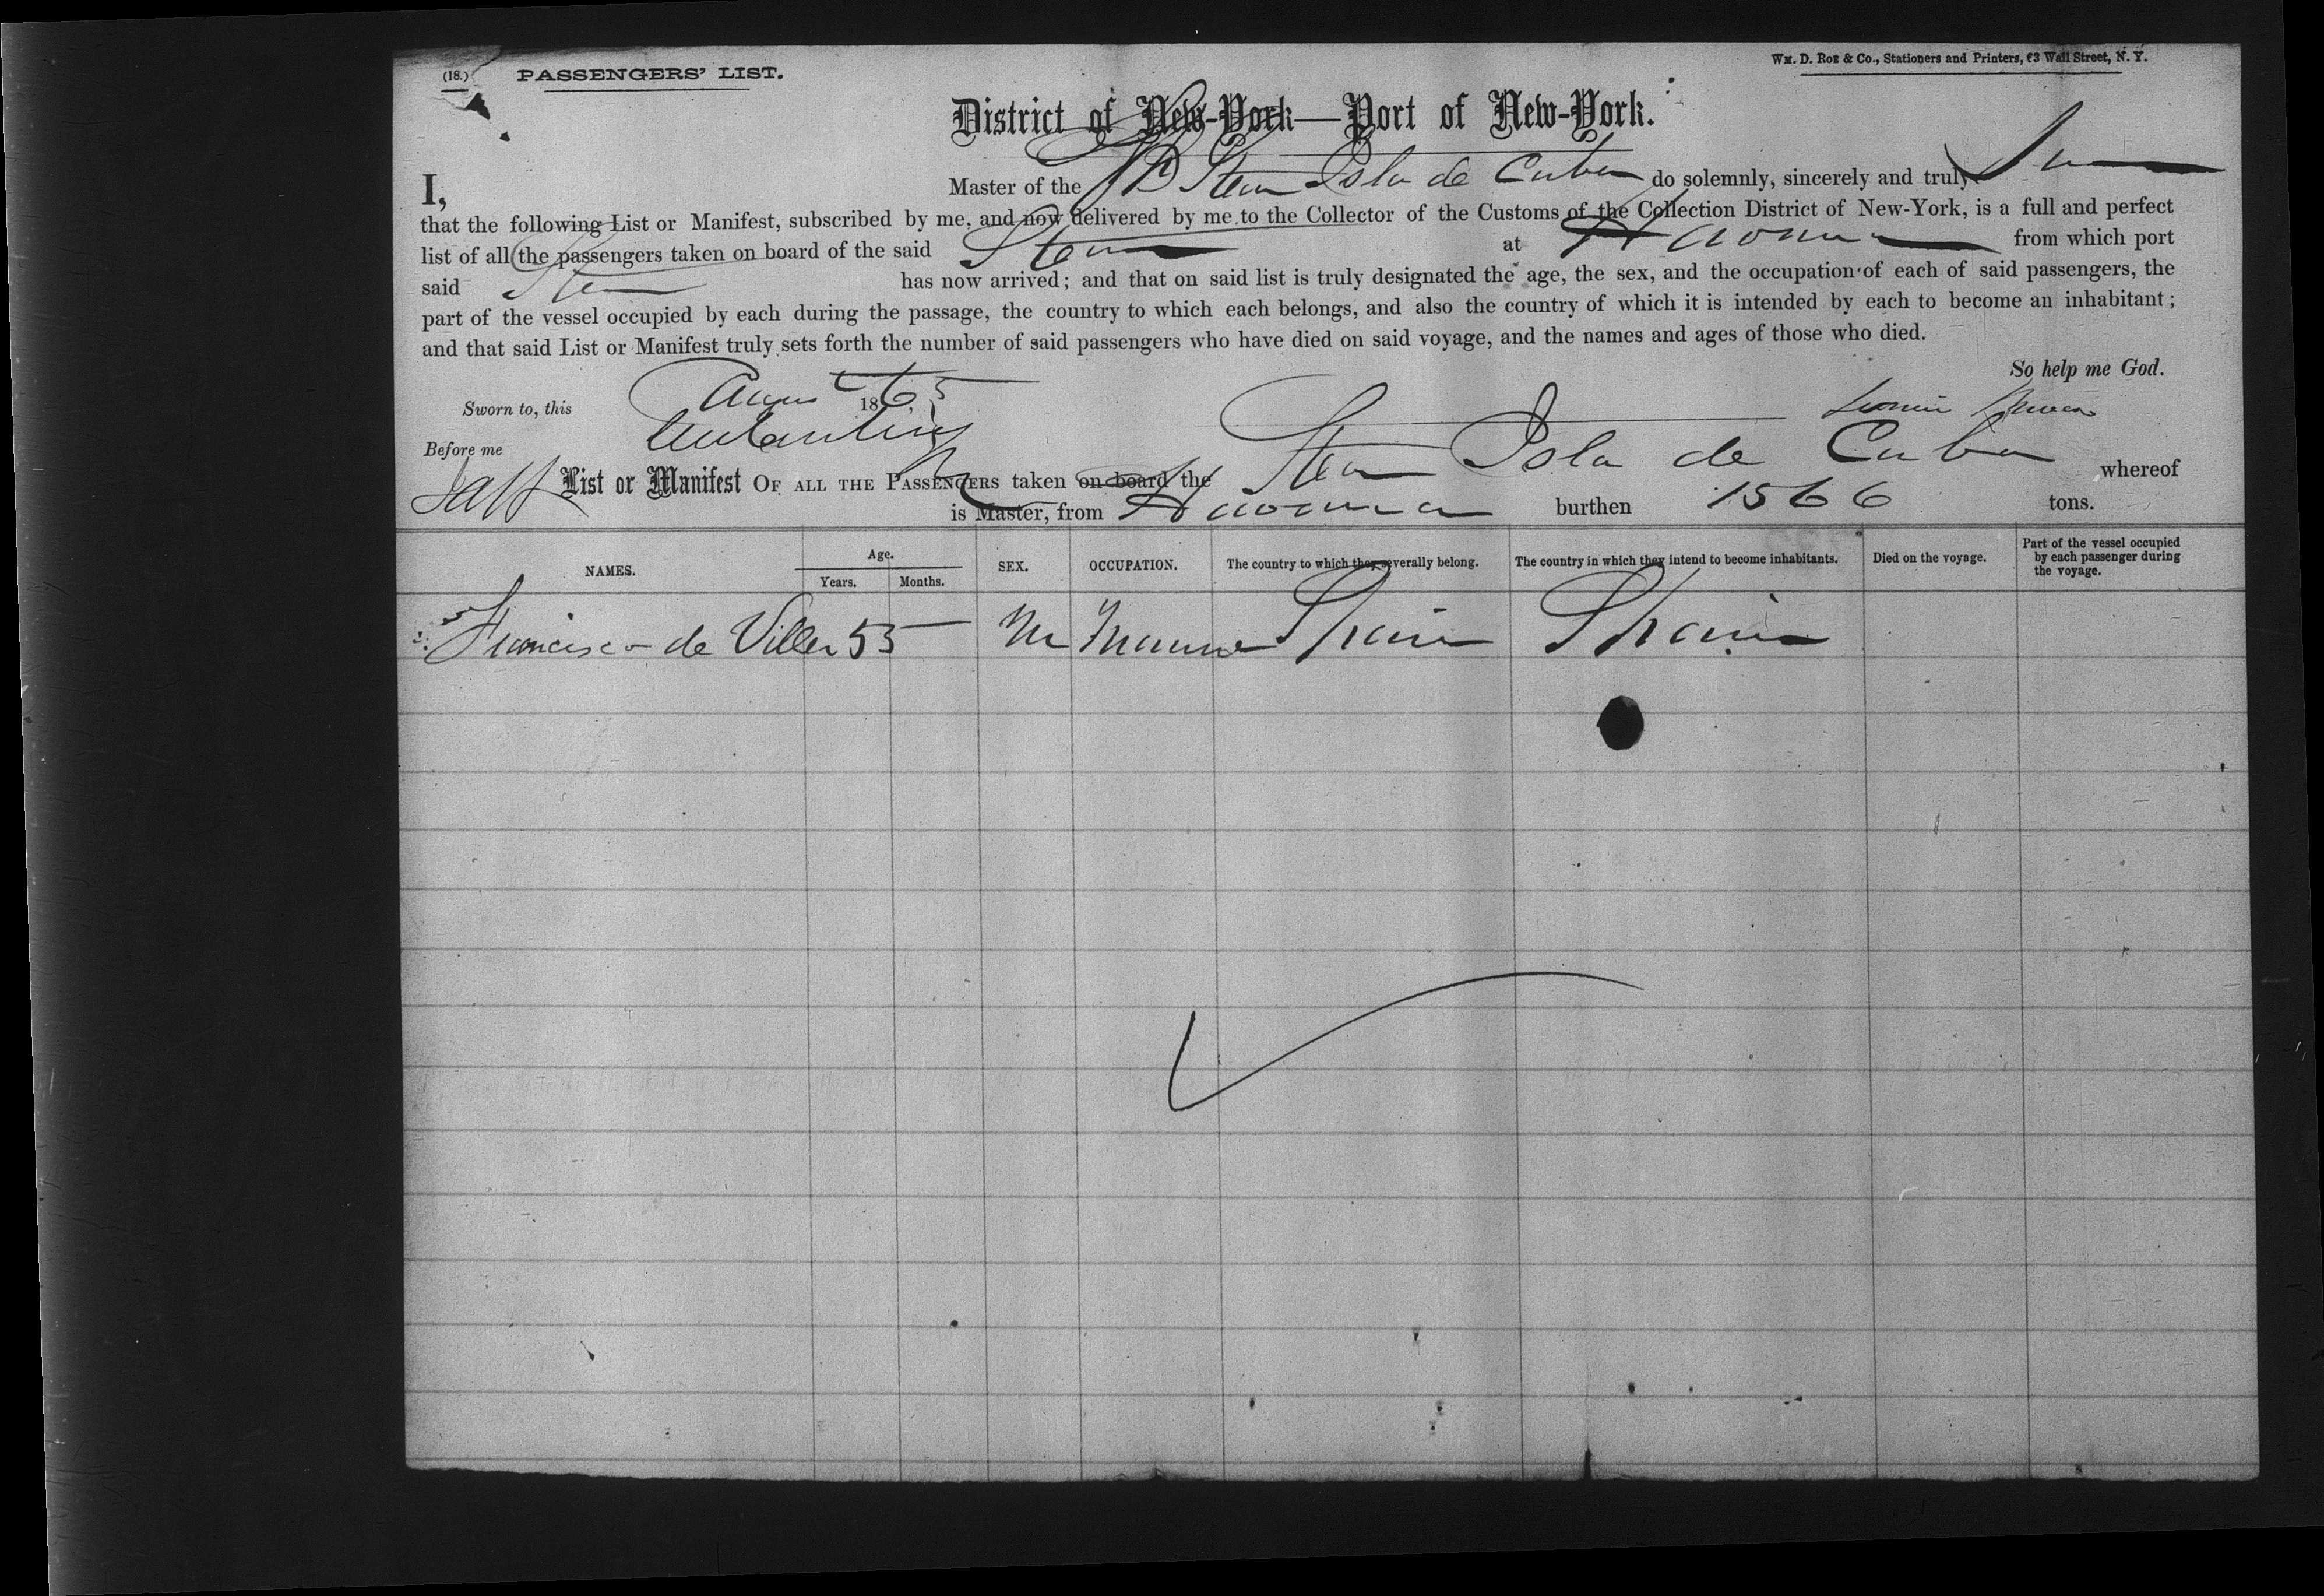 (18.) PASSENGERS' LIST. Wm. D. Roe & Co., Stationers and Printers, 63 Wall Street, N. Y.
District of New-York—Port of New-York.
I, Master of the Isla de Cuba do solemnly, sincerely and truly
that the following List or Manifest, subscribed by me, and now delivered by me to the Collector of the Customs of the Collection District of New-York, is a full and perfect
list of all the passengers taken on board of the said Steam at Havana from which port
said has now arrived; and that on said list is truly designated the age, the sex, and the occupation of each of said passengers, the
part of the vessel occupied by each during the passage, the country to which each belongs, and also the country of which it is intended by each to become an inhabitant;
and that said List or Manifest truly sets forth the number of said passengers who have died on said voyage, and the names and ages of those who died.
So help me God.
Sworn to, this 18
Before me
List or Manifest OF ALL THE PASSENGERS taken on board the Steam Isla de Cuba whereof
is Master, from Havana burthen 1566 tons.
NAMES. Age. Years. Months. SEX. OCCUPATION. The country to which they severally belong. The country in which they intend to become inhabitants. Died on the voyage. Part of the vessel occupied by each passenger during the voyage.
Francisco de Viller 55 M Spain Spain